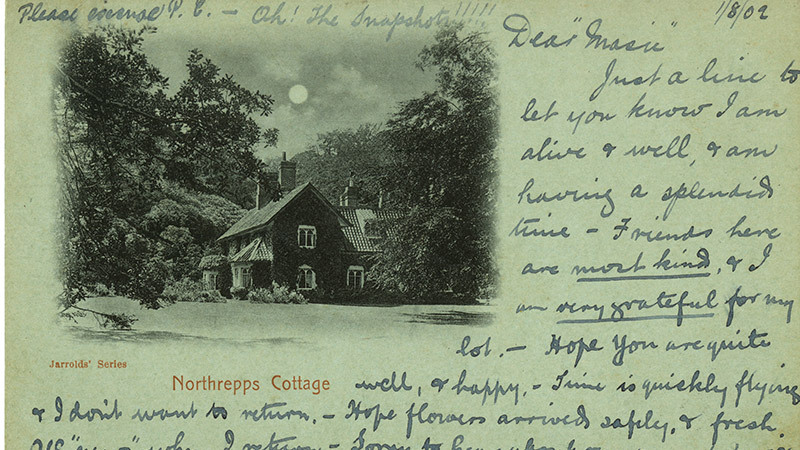 Please excuse P.C. – Oh! The Snapshots!!!!!
1/8/02
Dear "Masie"
Just a line to
let you know I am
alive & well, & am
having a splendid
time – Friends here
are most kind, & I
am very grateful for my
lot. – Hope you are quite
Jarrolds' Series
Northrepps Cottage
well, & happy. – Time is quickly flying
& I don't want to return. – Hope flowers arrived safely, & fresh.
I return – Sorry to